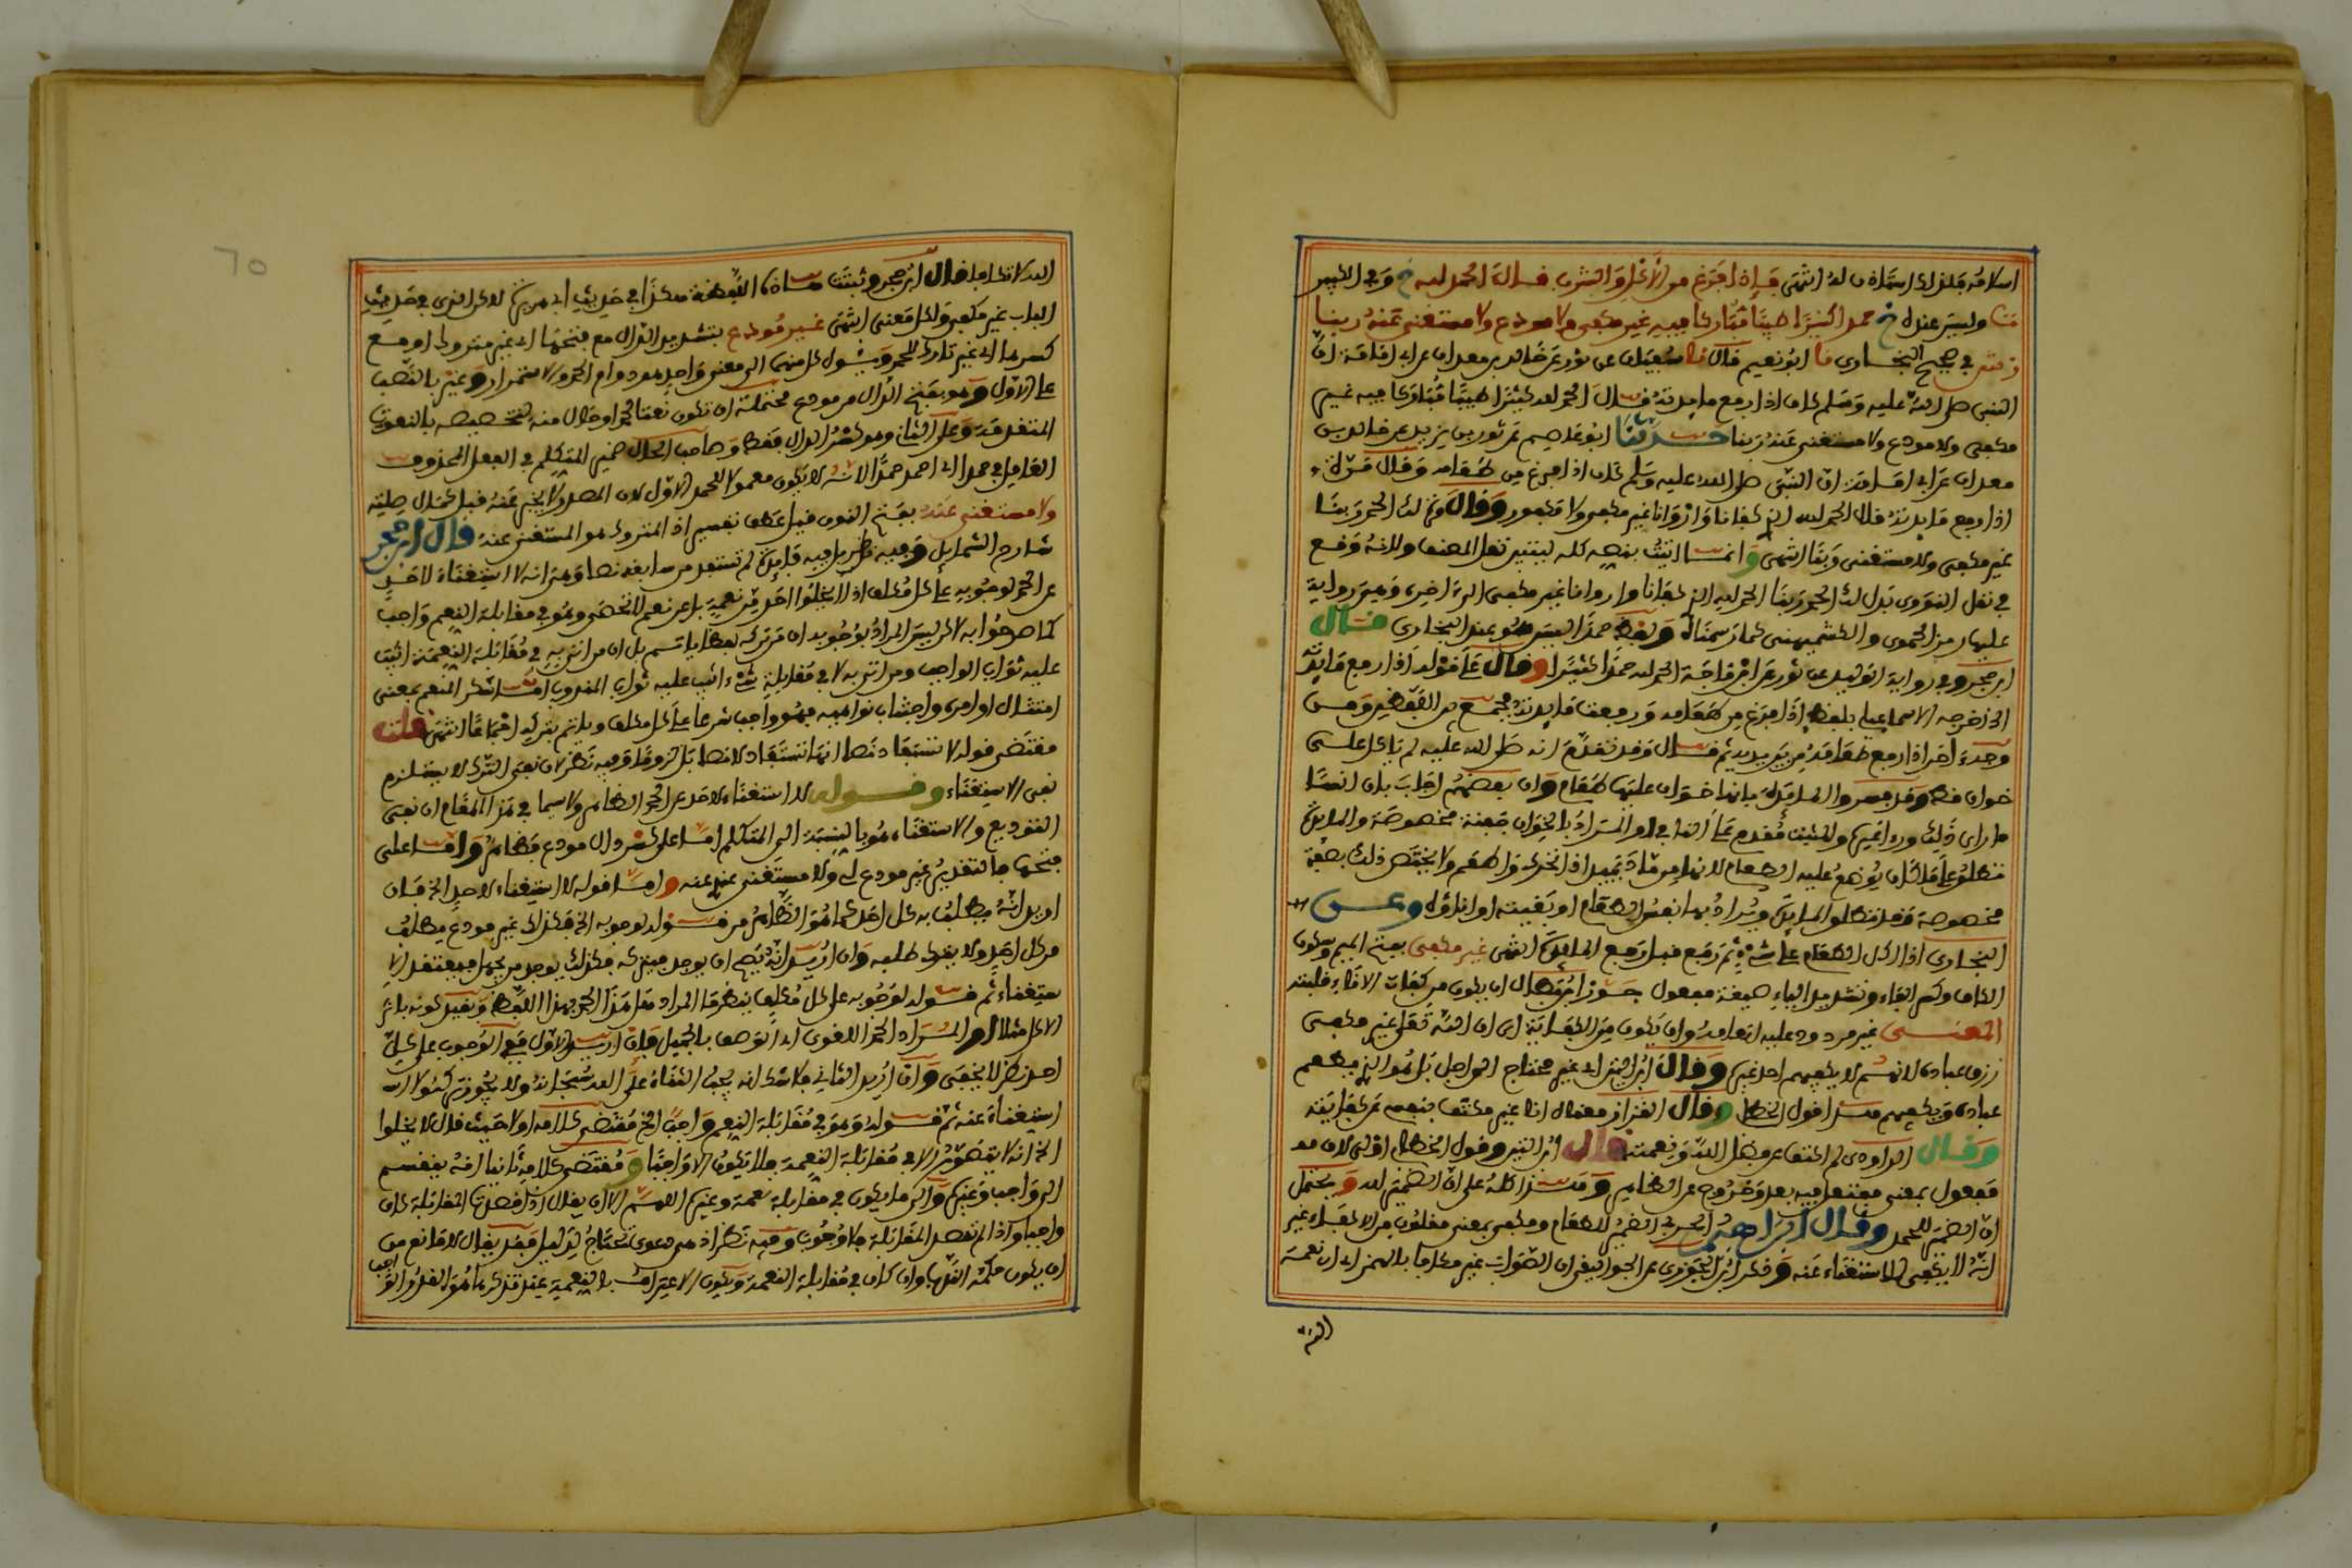 اسلامه فلذلك استثناه له انتهى فإذا فرغ من الأكل والشرب قال الحمد لله خ وفي الكبير
وليس عنده خ حمدا كثيرا طيبا مباركا فيه غير مكفي ولا مودع ولا مستغنى عنه ربنا
في صحيح البخاري نا ابو نعيم قال نا سفيان عن ثور عن خالد بن معدان عن ابي امامة ان
النبي صلى الله عليه وسلم كان اذا رفع مايدته قال الحمد لله كثيرا طيبا مباركا فيه غير
مكفي ولا مودع ولا مستغنى عنه ربنا حدثنا ابو عاصم عن ثور بن يزيد عن خالد بن
معدان عن ابي امامة ان النبي صلى الله عليه وسلم كان اذا فرغ من طعامه وقال مرة
اذا رفع مايدته قال الحمد لله الذي كفانا وأروانا غير مكفي ولا مكفور وقال مرة لك الحمد ربنا
غير مكفي ولا مستغنى ربنا انتهى وانما اتيت بنصه كله ليتبين نقل المصنف ولانه وقع
في نقل النووي بدل لك الحمد ربنا الحمد لله الذي كفانا واروانا غير مكفي الى اخره
عليها رمز الحموي والكشميهني كما رسمناه ولفظ حمدا ليس هو عند البخاري قال
ابن حجر وفي رواية الوليد عن ثور عن ابن ماجة الحمد لله حمدا كثيرا وقال على قوله اذا رفع مايدته
اخرجه الاسماعيلي بلفظ اذا فرغ من طعامه ورفعت مايدته فجمع بين اللفظين ومن
وجه اخر اذا رفع طعامه من بين يديه ثم قال وقد تقدم انه صلى الله عليه لم ياكل على
خوان قط وقد فسروا المايدة بانها خوان عليها طعام وان بعضهم اجاب بان انسا
ما راى ذلك وراه غيره والمثبت مقدم على النافي او المراد بالخوان صفة مخصوصة والمايدة
تطلق على ما كان يوضع عليه الطعام لانها من ماد يميد اذا تحرك واطعم ولا يختص ذلك بصفة
مخصوصة وقد تطلق المايدة ويراد بها نفس الطعام او بقيته او اناؤه وعن
البخاري اذا اكل الطعام على شيء ثم رفع قيل رفع المايدة انتهى غير مكفي بفتح الميم وسكون
الكاف وكسر الفاء وتشديد الياء صيغة مفعول جوز ابن بطال ان يكون من كفأت الاناء قلبته
المعنى غير مردود عليه انعامه وان يكون من الكفاية اي ان الله تعالى غير مكفي
رزق عباده لانهم لا يكفيهم احد غيره وقال ابن التين اي غير محتاج الى احد بل هو الذي يطعم
عباده ويكفيهم هذا قول الخطابي وقال القزاز معناه انا غير مكتف بنفسي عن كفايته
وقال الداودي لم اكتف من فضل الله ونعمته قال ابن التين وقول الخطابي اولى لان
مفعول بمعنى مفتعل فيه بعد وخروج عن الظاهر وهذا كله على ان الضمير لله ويحتمل
ان الضمير للحمد وقال ابراهيم الحربي الضمير للطعام ومكفي بمعنى مقلوب من الاكفاء غير
انه لا يكفي للاستغناء عنه وذكر ابن الجوزي عن الجواليقي ان الصواب غير مكافا بالهمز اي ان نعمة
الله
الله لا تكافا قال ابن حجر وثبتت هذه اللفظة هكذا في حديث ابي هريرة لكن الذي في حديث
الباب غير مكفي ولكل معنى انتهى غير مودع بتشديد الدال مع فتحها اي غير متروك او مع
كسرها اي غير تارك للحمد ويئول كل منهما الى معنى واحد وهو دوام الحمد والاستمرار وغير بالنصب
على الاول وهو بفتح الدال من مودع محتملة ان تكون نعتا لحمدا او حال منه لتخصيصه بالنعوت
المتقدمة وعلى الثاني وهو كسر الدال فقط وصاحب الحال ضمير المتكلم في الفعل المحذوف
العامل في حمدا اي احمد حمدا الا انه لا يكون معمولا للحمد الاول لان المصدر لا يخبر عنه قبل كمال صلته
ولا مستغنى عنه بفتح النون قيل عطف تفسير اذ المتروك هو المستغنى عنه قال ابن حجر
شارح الشمايل وفيه نظر بل فيه فايدة لم تستفد من سابقه نصا وهي انه لا استغناء لاحد
عن الحمد لوجوبه على كل مكلف اذ لا يخلوا احد من نعمة بل عن نعم لا تحصى وهو في مقابلة النعم واجب
كما صرحوا به لكن ليس المراد بوجوبه ان من تركه لفظا ياثم بل ان من اتى به في مقابلة النعمة اثيب
عليه ثواب الواجب ومن اتى به لا في مقابلة شيء اثيب عليه ثواب المندوب اما شكر المنعم بمعنى
امتثال اوامره واجتناب نواهيه فهو واجب شرعا على كل مكلف وياثم بتركه اجماعا انتهى قلت
مقتضى قوله لا تستفاد نصا انها تستفاد لا نصا بل لزوما وفيه نظر لان نفي الترك لا يستلزم
نفي الاستغناء وقوله لا استغناء لاحد عن الحمد الظاهر ولا سيما في هذا المقام ان نفي
التوديع والاستغناء هو بالنسبة الى المتكلم اما على كسر دال مودع فظاهر واما على
فتحها فالتقدير غير مودع لي ولا مستغنى عنه واما قوله لا استغناء لاحد الخ فان
اريد انه يطلب به كل احد كما هو الظاهر من قوله لوجوبه الخ فكذلك غير مودع يطلب
من كل احد ولا يفوت طلبه وان اريد انه يصح ان يوجد فيتركه فكذلك يوجد من يجهل فيعتقد
ستغناء ثم قوله لوجوبه على كل مكلف ينظر ما المراد هل هذا الحمد بهذا اللفظ وبقيد كونه باثر
الاكل مثلا او المراد الحمد اللغوي اي الوصف بالجميل فان اريد الاول ففي الوجوب على كل
احد نظر لا يخفى وان اريد الثاني فلا شك انه يجب الثناء على الله سبحانه ولا يجوز
استغناء عنه ثم قوله وهو في مقابلة النعم واجب الخ مقتضى كلامه اولا حيث قال لا يخلوا
الخ انه لا يتصور الا في مقابلة النعمة فلا يكون الا واجبا ومقتضى كلامه ثانيا انه ينقسم
الى واجب وغيره والى ما يكون في مقابلة نعمة وغيره اللهم الا ان يقال اذا قصد المقابلة كان
واجبا واذا لم تقصد المقابلة فلا وجوب وفيه نظر اذ هي دعوى تحتاج لدليل فقد يقال لا مانع من
ان يكون حكمه الندب وان كان في مقابلة النعمة ويكون الاعتراف بالنعمة عند تذكرها هو القدر الواجب